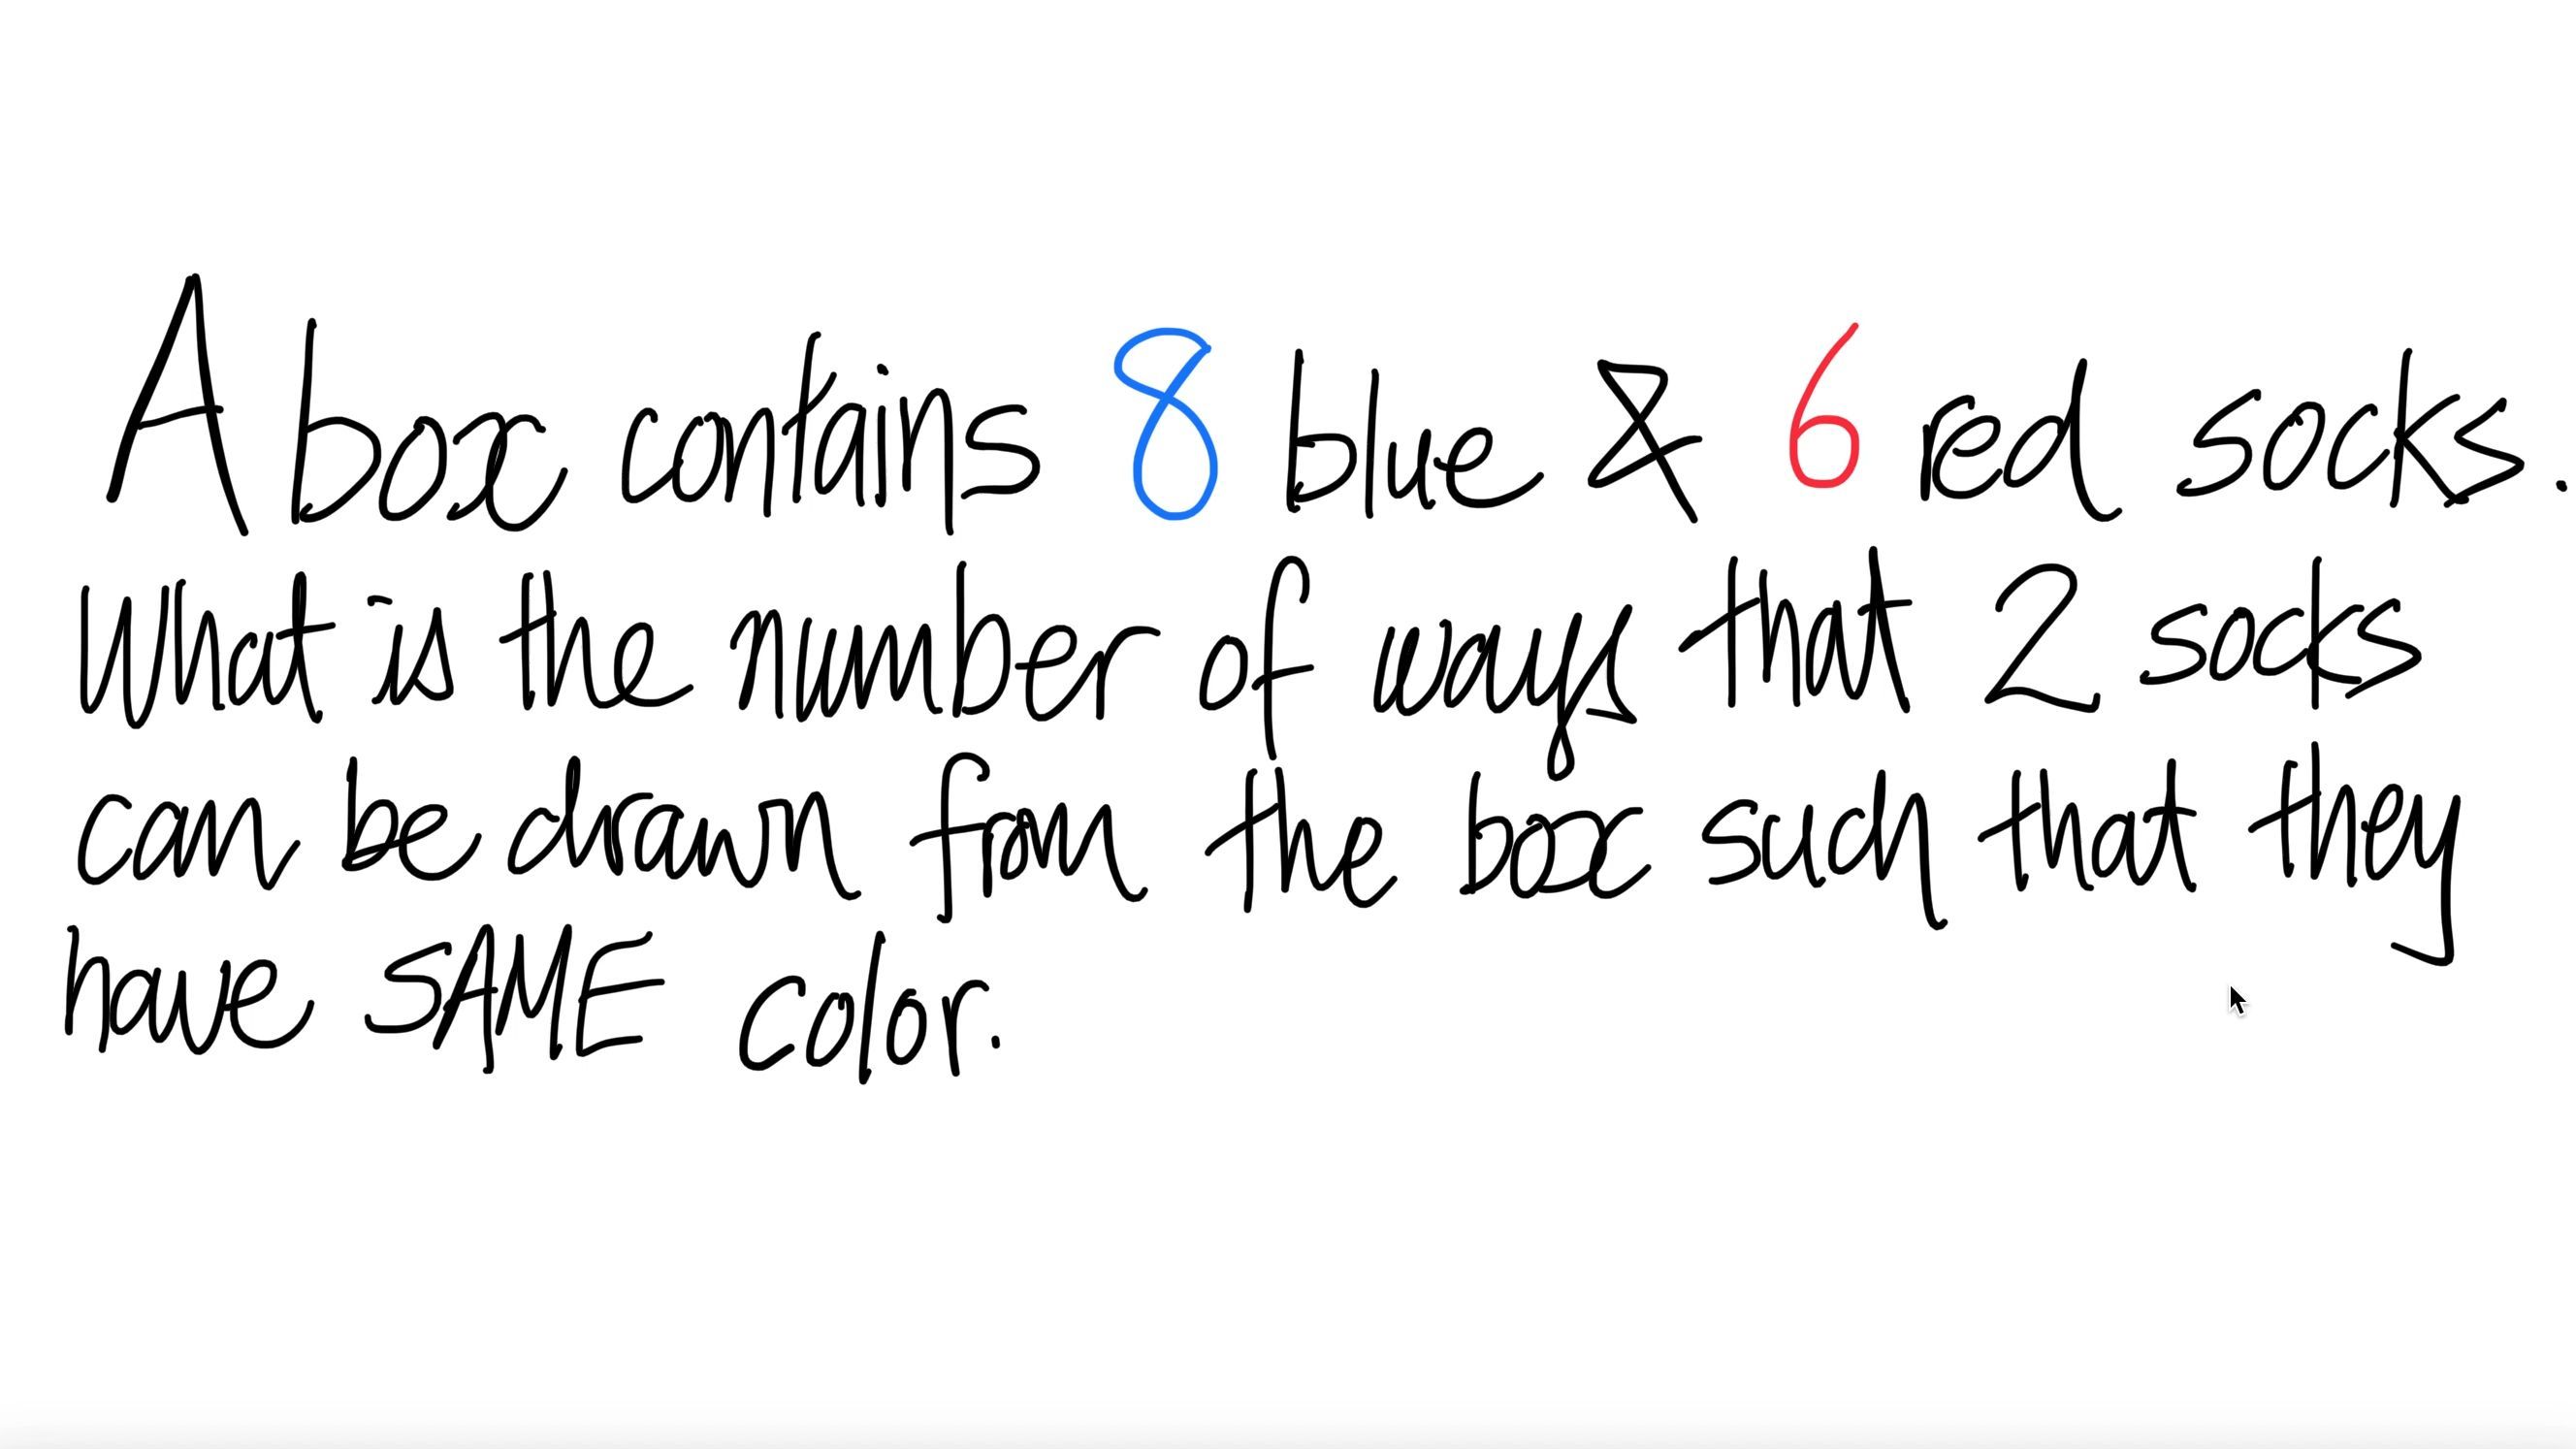 A box contains 8 blue & 6 red socks.
What is the number of ways that 2 socks
can be drawn from the box such that they
have SAME color.